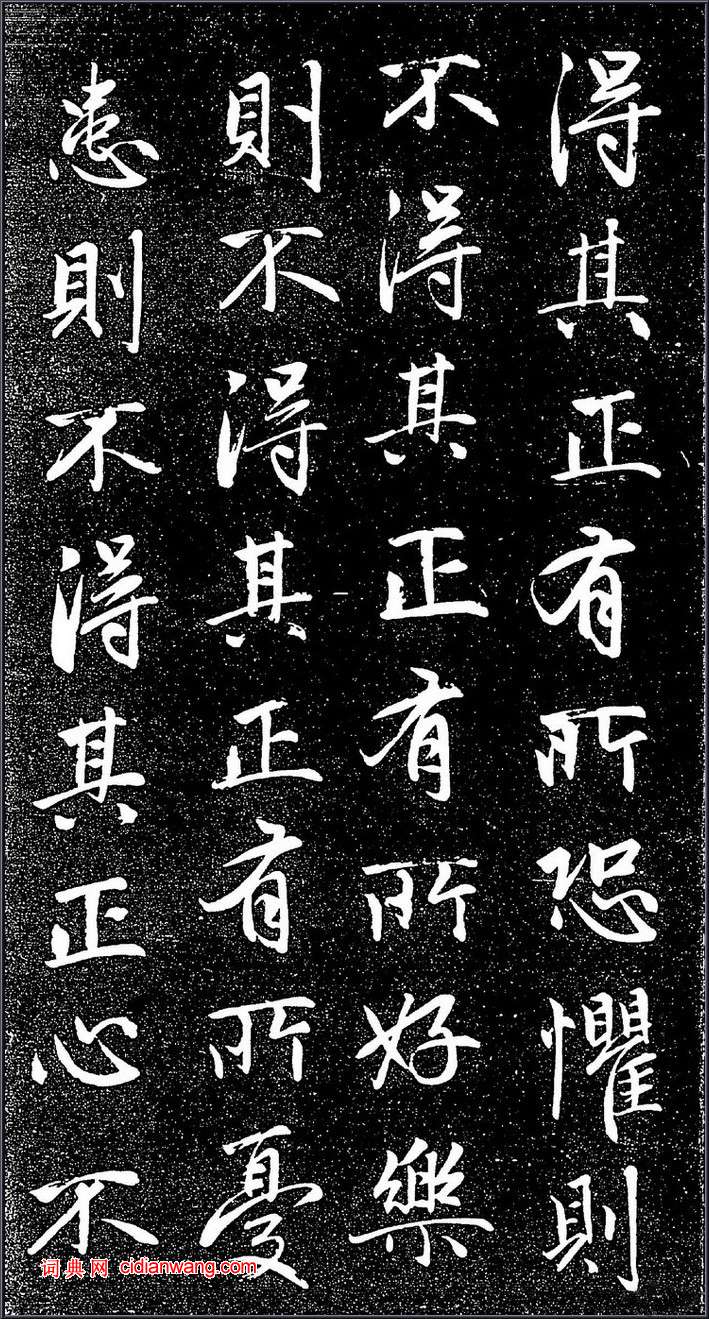 得其正有所恐懼則
不得其正有所好樂
則不得其正有所憂
患則不得其正心不
词典网 cidianwang.com